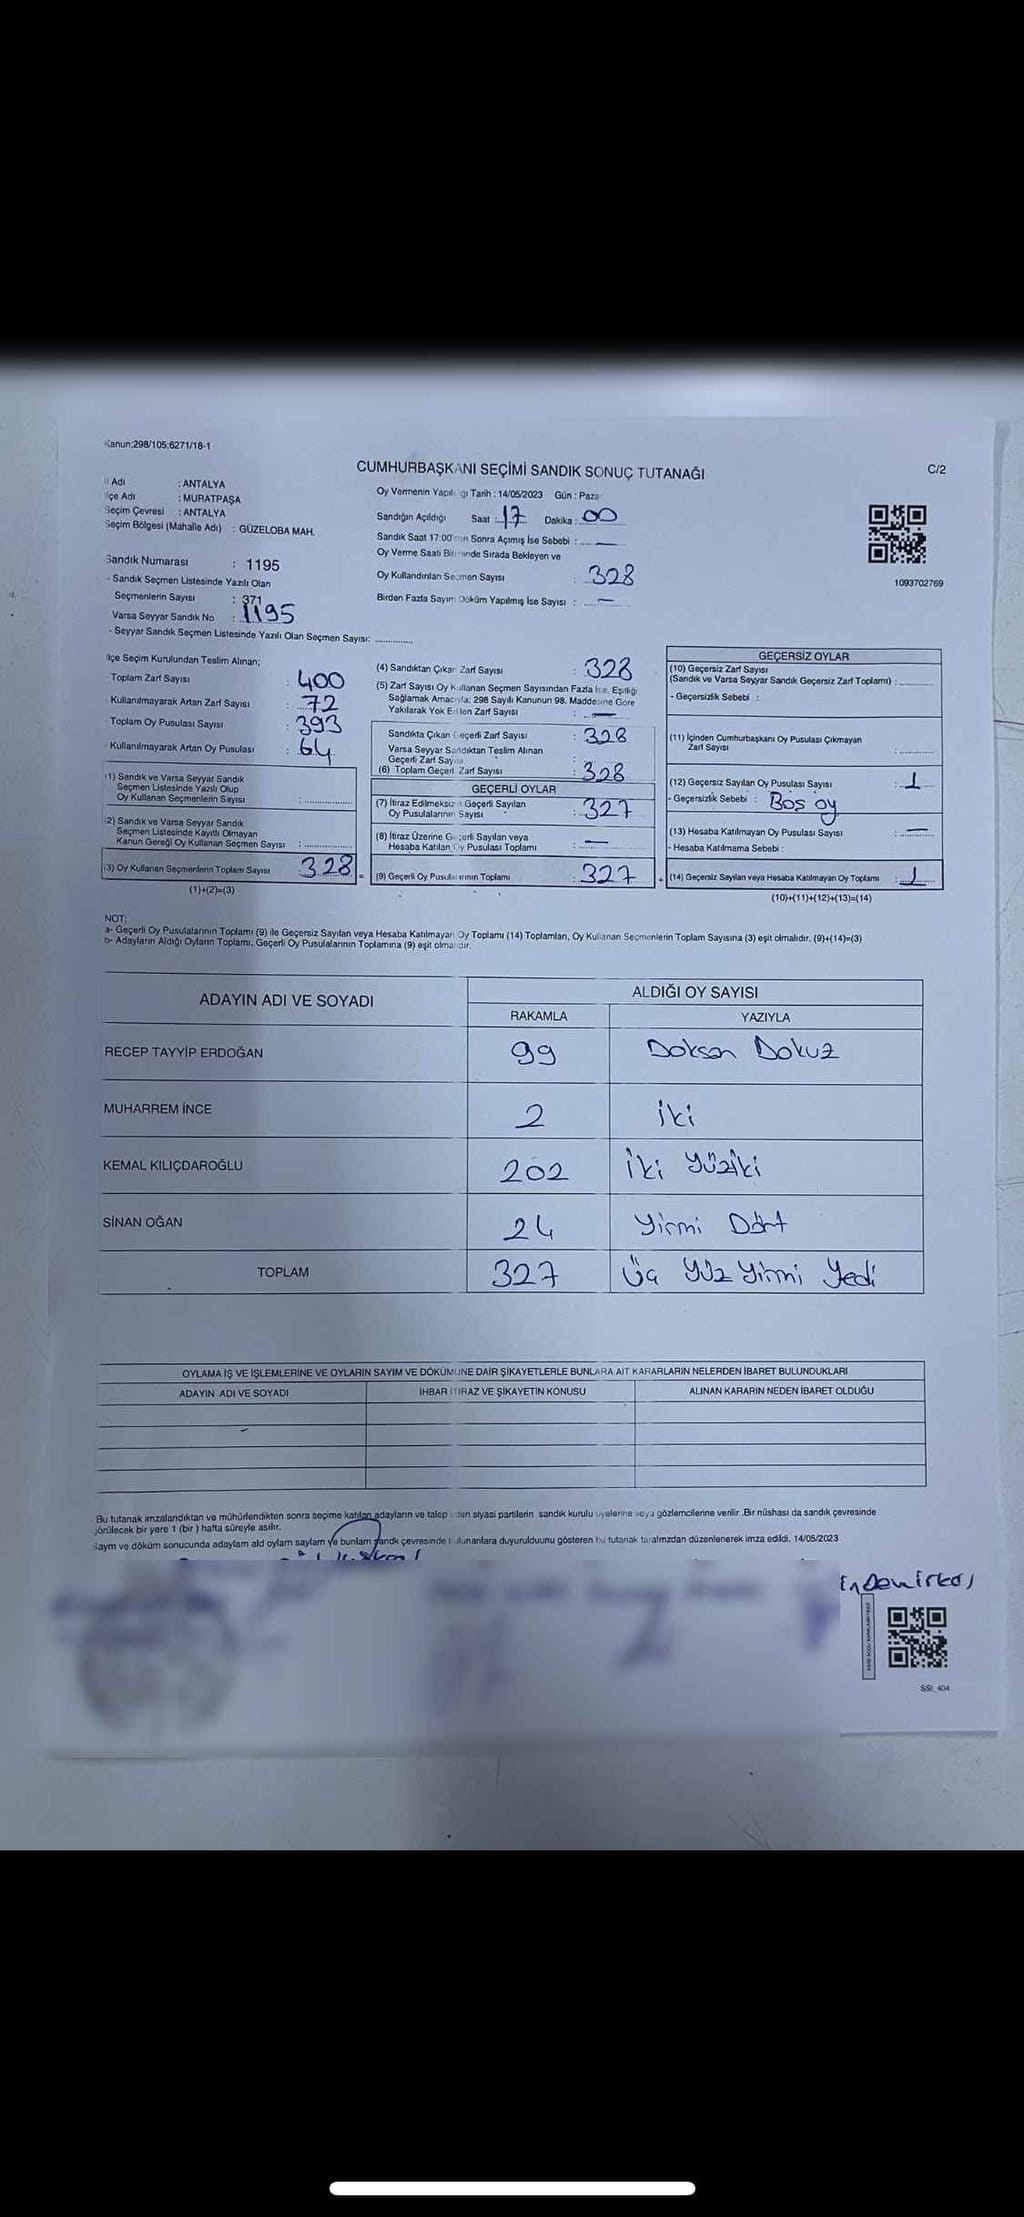 Kanun:298/105;6271/18-1
CUMHURBAŞKANI SEÇİMİ SANDIK SONUÇ TUTANAĞI
C/2
İl Adı : ANTALYA
İlçe Adı : MURATPAŞA
Seçim Çevresi : ANTALYA
Seçim Bölgesi (Mahalle Adı) : GÜZELOBA MAH.
Sandık Numarası : 1195
- Sandık Seçmen Listesinde Yazılı Olan
Seçmenlerin Sayısı : 371
Varsa Seyyar Sandık No : 1195
- Seyyar Sandık Seçmen Listesinde Yazılı Olan Seçmen Sayısı: ..............
Oy Vermenin Yapıldığı Tarih : 14/05/2023 Gün : Pazar
Sandığın Açıldığı Saat : 17 Dakika : 00
Sandık Saat 17:00'den Sonra Açımış İse Sebebi : —
Oy Verme Saati Bitiminde Sırada Bekleyen ve
Oy Kullandırılan Seçmen Sayısı : 328
Birden Fazla Sayım Döküm Yapılmış İse Sayısı : —
1093702769
İlçe Seçim Kurulundan Teslim Alınan;
Toplam Zarf Sayısı : 400
Kullanılmayarak Artan Zarf Sayısı : 72
Toplam Oy Pusulası Sayısı : 393
Kullanılmayarak Artan Oy Pusulası : 64
(1) Sandık ve Varsa Seyyar Sandık
Seçmen Listesinde Yazılı Olup
Oy Kullanan Seçmenlerin Sayısı : ..............
(2) Sandık ve Varsa Seyyar Sandık
Seçmen Listesinde Kayıtlı Olmayan
Kanun Gereği Oy Kullanan Seçmen Sayısı : ..............
(3) Oy Kullanan Seçmenlerin Toplam Sayısı : 328
(1)+(2)=(3)
(4) Sandıktan Çıkan Zarf Sayısı : 328
(5) Zarf Sayısı Oy Kullanan Seçmen Sayısından Fazla İse, Eşitliği
Sağlamak Amacıyla; 298 Sayılı Kanunun 98. Maddesine Göre
Yakılarak Yok Edilen Zarf Sayısı : —
Sandıkta Çıkan Geçerli Zarf Sayısı : 328
Varsa Seyyar Sandıktan Teslim Alınan
Geçerli Zarf Sayısı
(6) Toplam Geçerli Zarf Sayısı : 328
GEÇERLİ OYLAR
(7) İtiraz Edilmeksizin Geçerli Sayılan
Oy Pusulalarının Sayısı : 327
(8) İtiraz Üzerine Geçerli Sayılan veya
Hesaba Katılan Oy Pusulası Toplamı : —
= (9) Geçerli Oy Pusulalarının Toplamı : 327
GEÇERSİZ OYLAR
(10) Geçersiz Zarf Sayısı
(Sandık ve Varsa Seyyar Sandık Geçersiz Zarf Toplamı) : ..............
- Geçersizlik Sebebi :
(11) İçinden Cumhurbaşkanı Oy Pusulası Çıkmayan
Zarf Sayısı : ..............
(12) Geçersiz Sayılan Oy Pusulası Sayısı : 1
- Geçersizlik Sebebi : Boş oy
(13) Hesaba Katılmayan Oy Pusulası Sayısı : —
- Hesaba Katılmama Sebebi :
+ (14) Geçersiz Sayılan veya Hesaba Katılmayan Oy Toplamı : 1
(10)+(11)+(12)+(13)=(14)
NOT:
a- Geçerli Oy Pusulalarının Toplamı (9) ile Geçersiz Sayılan veya Hesaba Katılmayan Oy Toplamı (14) Toplamları, Oy Kullanan Seçmenlerin Toplam Sayısına (3) eşit olmalıdır. (9)+(14)=(3)
b- Adayların Aldığı Oyların Toplamı, Geçerli Oy Pusulalarının Toplamına (9) eşit olmalıdır.
ADAYIN ADI VE SOYADI
ALDIĞI OY SAYISI
RAKAMLA YAZIYLA
RECEP TAYYİP ERDOĞAN 99 Doksan Dokuz
MUHARREM İNCE 2 iki
KEMAL KILIÇDAROĞLU 202 iki yüziki
SİNAN OĞAN 24 Yirmi Dört
TOPLAM 327 Üç Yüz Yirmi Yedi
OYLAMA İŞ VE İŞLEMLERİNE VE OYLARIN SAYIM VE DÖKÜMÜNE DAİR ŞİKAYETLERLE BUNLARA AİT KARARLARIN NELERDEN İBARET BULUNDUKLARI
ADAYIN ADI VE SOYADI İHBAR İTİRAZ VE ŞİKAYETİN KONUSU ALINAN KARARIN NEDEN İBARET OLDUĞU
Bu tutanak imzalandıktan ve mühürlendikten sonra seçime katılan adayların ve talep eden siyasi partilerin sandık kurulu üyelerine veya gözlemcilerine verilir. Bir nüshası da sandık çevresinde
görülecek bir yere 1 (bir) hafta süreyle asılır.
Sayım ve döküm sonucunda adayların ald oyların sayıların ve bunların sandk çevresinde bulunanlara duyurulduunu gösteren bu tutanak tarafmzdan düzenlenerek imza edildi. 14/05/2023
SSI_404